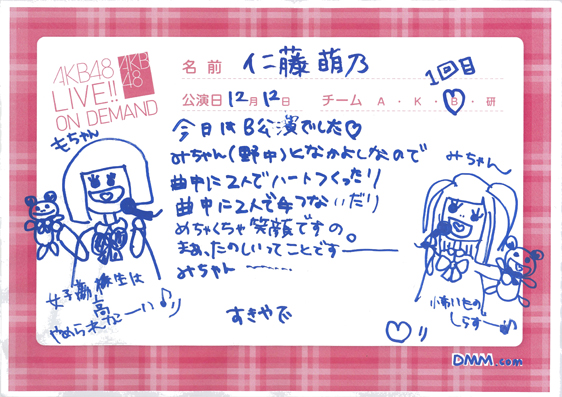 AKB48
LIVE!!
ON DEMAND
AKB
48
名前 仁藤萌乃
1回目
公演日 12月12日 チーム A・K・B・研
今日はB公演でした♡
みちゃん(野中)となかよしなので
曲中に2人でハートつくったり
曲中に2人で手つないだり
めちゃくちゃ笑顔ですの。
まぁ、たのしいってことですー
みちゃん〜
すきやで
もちゃん
女子高生は
やめられなーい♪
みちゃん
怖いもの
しらずー♪
DMM.com